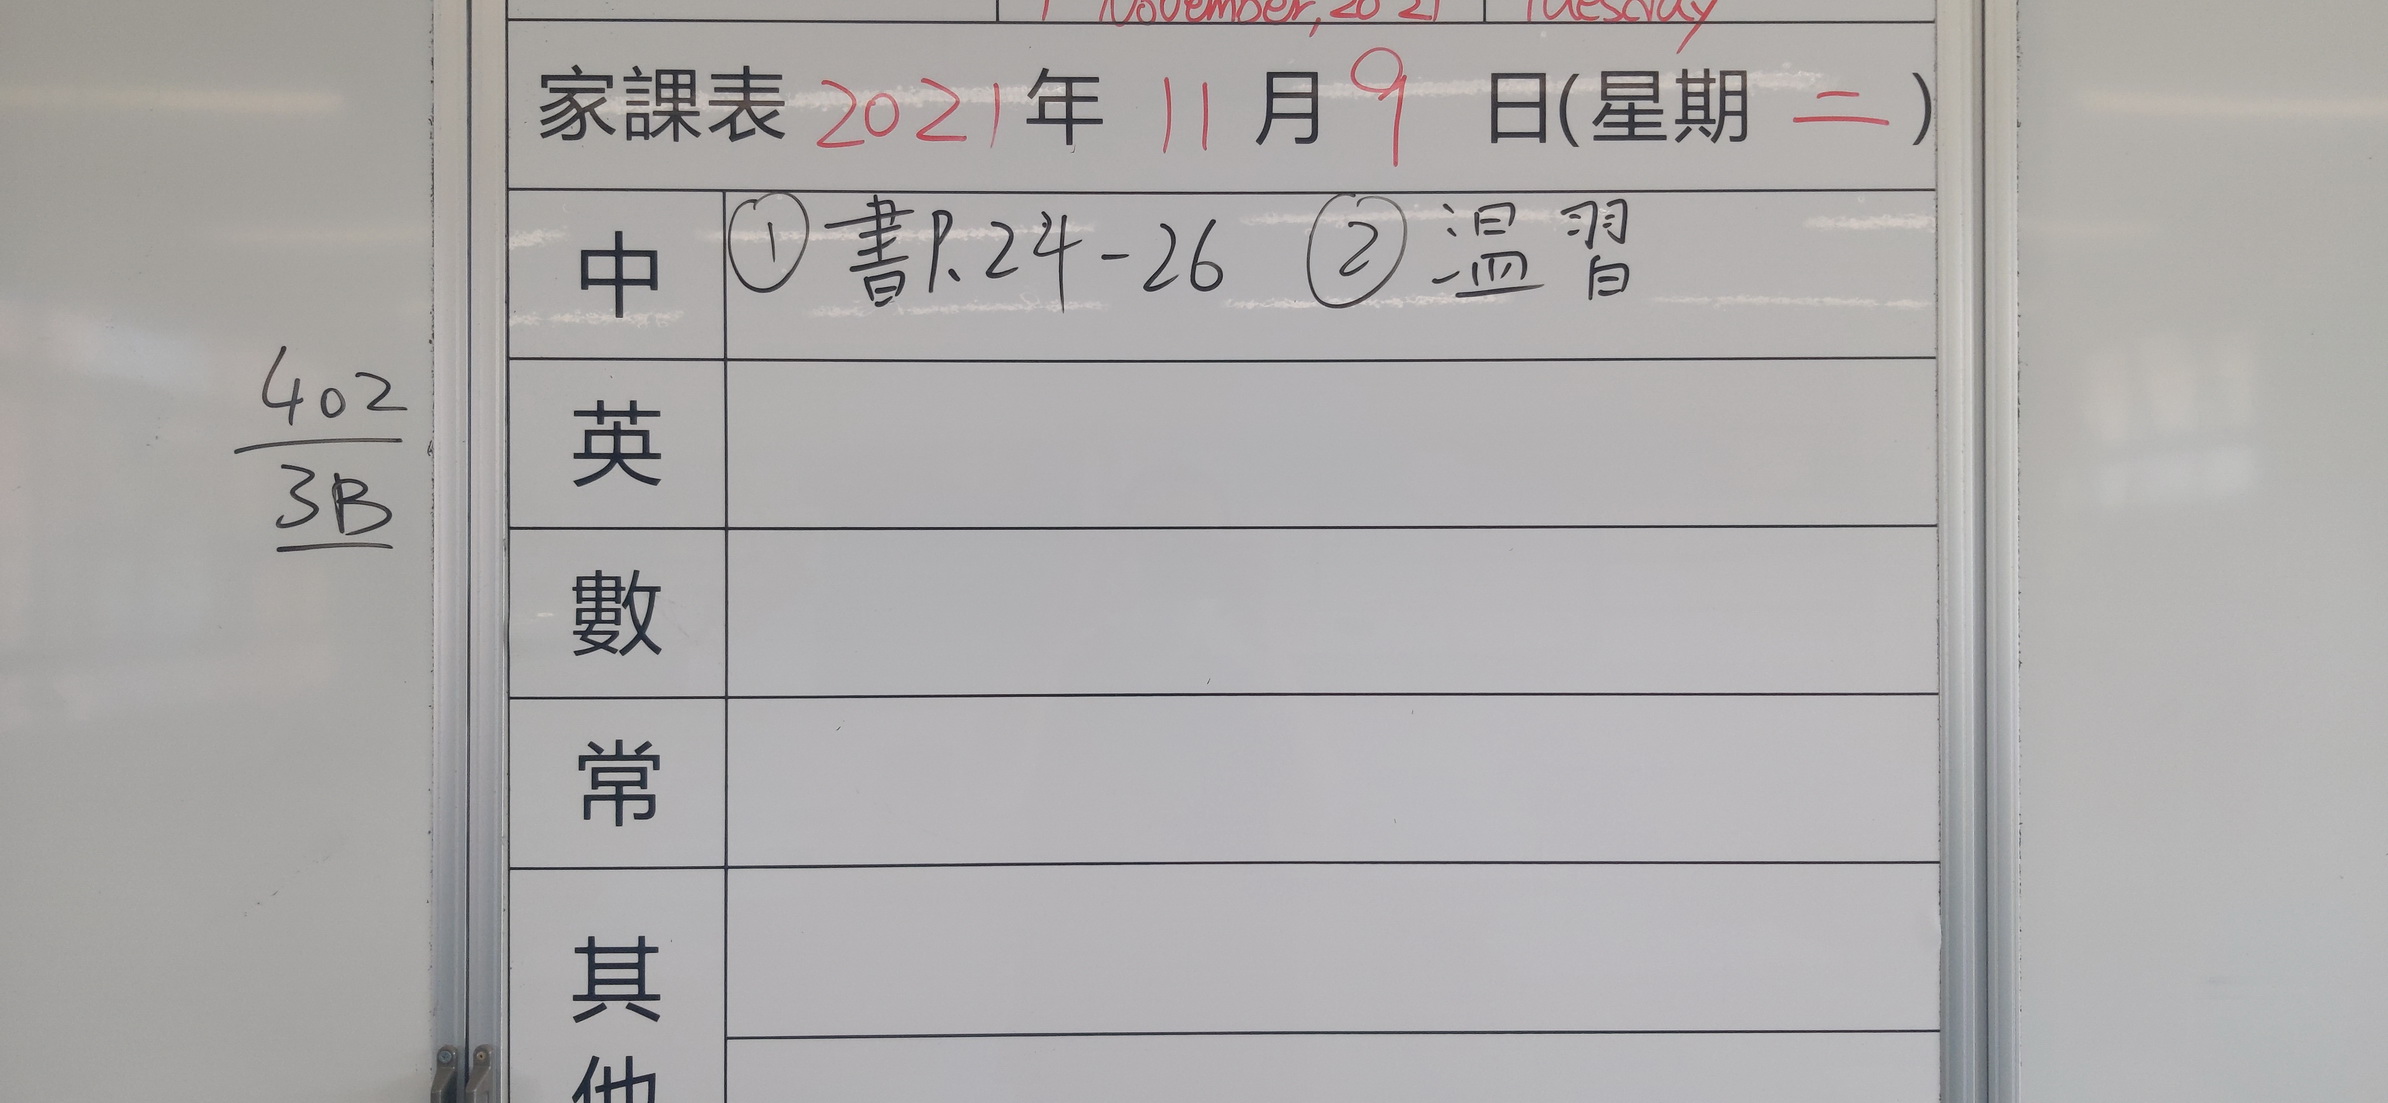 November, 2021 Tuesday
家課表 2021年 11月9日(星期二)
中 ① 書P.24-26 ② 温習
英
數
常
其他
402
3B